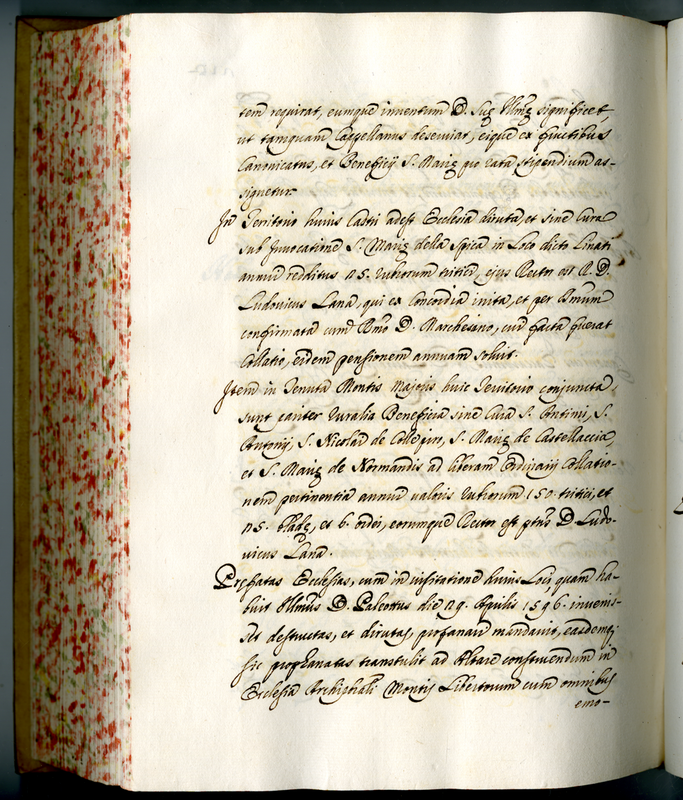 tem requirat, eumque inventum D. Suæ Illmæ significet,
ut tamquam Cappellanus deserviat, eique ex fructibus
Canonicatus, et Beneficij S. Mariæ pro rata stipendium as-
signetur.
In Territorio huius Castri adest Ecclesia diruta, et sine Cura
sub Invocatione S. Mariæ della Spica in Loco dicto Linati
annui redditus 15. rubiorum tritici, ejus Rector est R. D.
Ludovicus Lana, qui ex Concordia inita, et per Bmum
confirmata cum Rmo D. Marchesino, cui facta fuerat
Collatio, eidem pensionem annuam solvit.
Item in Tenuta Montis Majoris huic Territorio conjuncta,
sunt pariter ruralia Beneficia sine Cura S. Antimi, S.
Antonij, S. Nicolai de Colle piro, S. Mariæ de Castellaccia,
et S. Mariæ de Normandis ad liberam Ordinarij Collatio-
nem pertinentia annui valoris rubiorum 150. tritici, et
15. bladæ, et 6. ordei, eorumque Rector est ptus D. Ludo-
vicus Lana.
Præfatas Ecclesias, cum in visitatione huius Loci quam ha-
buit Illmus D. Paleottus die 29. Aprilis 1596. invenis-
set destructas, et dirutas, profanari mandavit, easdemq;
sic prophanatas transtulit ad Altare construendum in
Ecclesia Archipbali Montis Libertorum cum omnibus
emo-